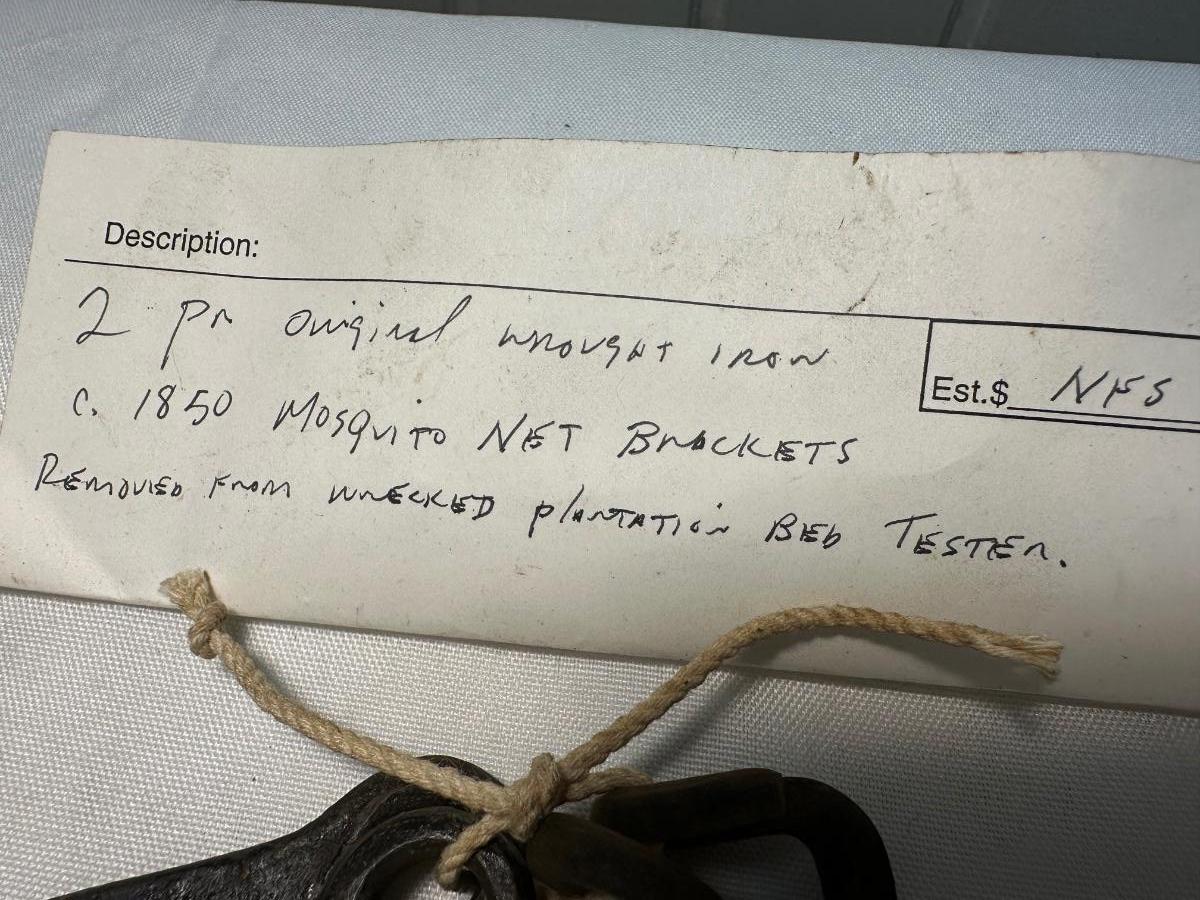 Description:
2 Pr Original wrought iron
Est.$ NFS
c. 1850 Mosquito NET BRACKETS
REMOVED FROM WRECKED plantation BED TESTER.